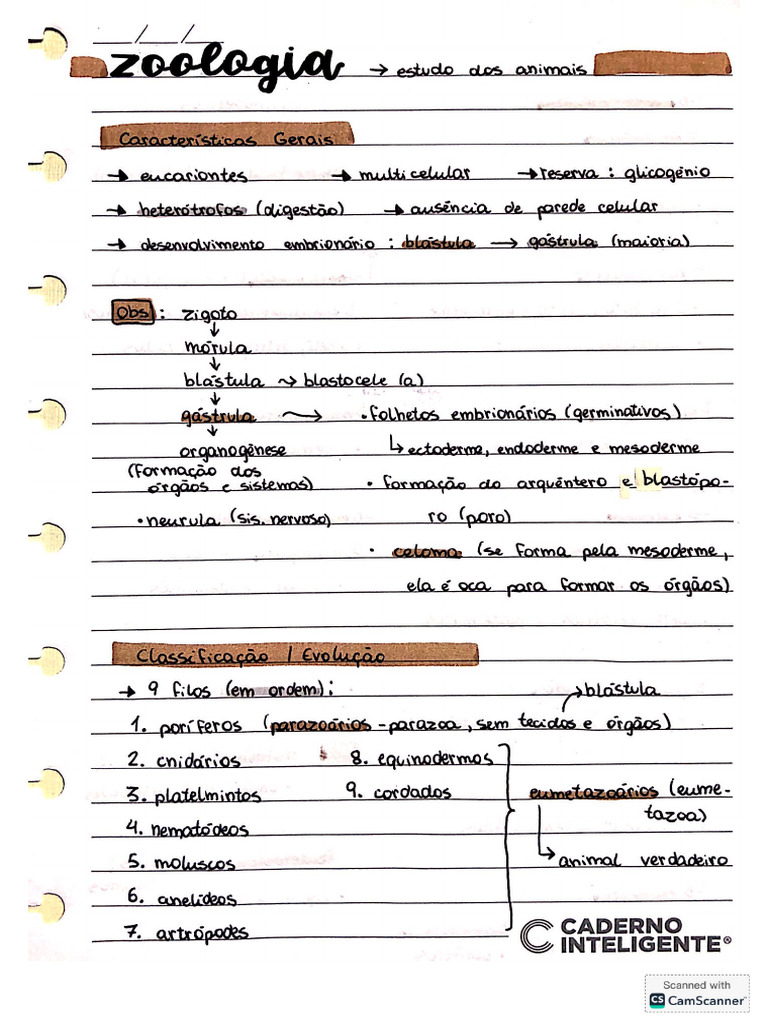 __/__/__
zoologia → estudo dos animais
Características Gerais
→ eucariontes → multicelular → reserva : glicogênio
→ heterótrofos (digestão) → ausência de parede celular
→ desenvolvimento embrionário : blástula → gástrula (maioria)
Obs : zigoto
↓
mórula
↓
blástula ~> blastocele (a)
↓
gástrula ~> • folhetos embrionários (germinativos)
↓
organogênese ↳ ectoderme, endoderme e mesoderme
(formação dos
órgãos e sistemas) • formação do arquêntero e blastópo-
• neurula (sis. nervoso) ro (poro)
• celoma (se forma pela mesoderme,
ela é oca para formar os órgãos)
Classificação / Evolução
→ 9 filos (em ordem): → blástula
1. poríferos (parazoários - parazoa, sem tecidos e órgãos)
2. cnidários 8. equinodermos
3. platelmintos 9. cordados eumetazoários (eume-
tazoa)
4. nematódeos
5. moluscos ↳ animal verdadeiro
6. anelídeos
7. artrópodes
CADERNO
INTELIGENTE®
Scanned with
CS CamScanner